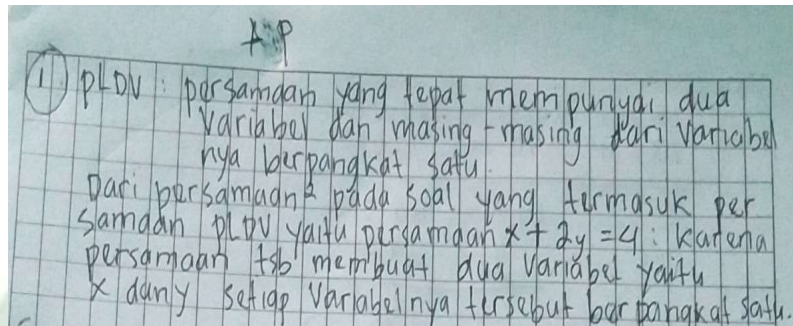 AP
① PLDV : persamaan yang tepat mempunyai dua
variabel dan masing-masing dari variabel
nya berpangkat satu.
Dari persamaan² pada soal yang termasuk per
samaan PLDV yaitu persamaan x + 2y = 4 : karena
persamaan tsb membuat dua variabel yaitu
x dan y setiap variabelnya tersebut berpangkat satu.